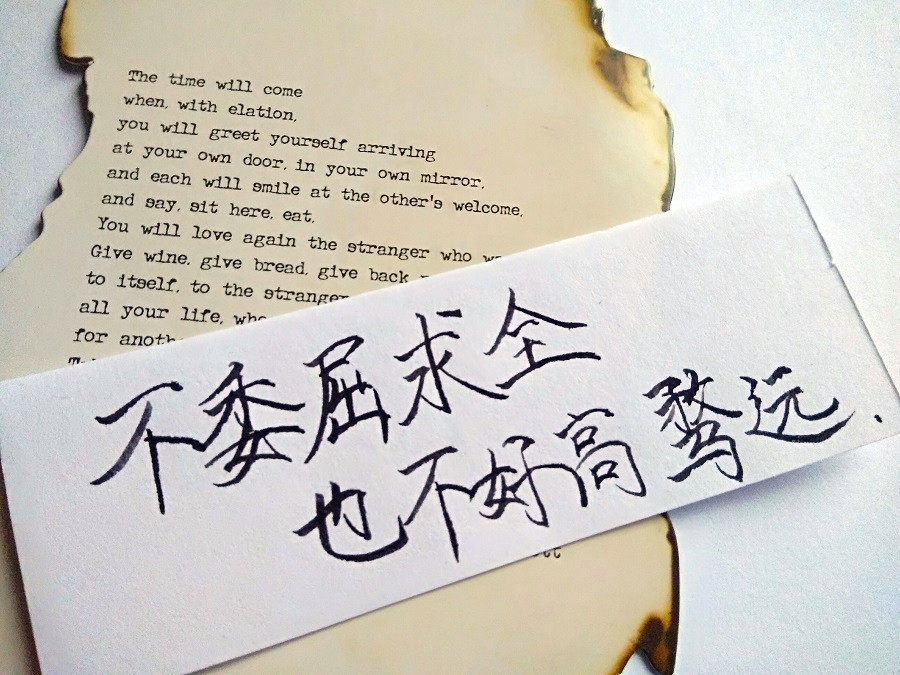 The time will come
when, with elation,
you will greet yourself arriving
at your own door, in your own mirror,
and each will smile at the other's welcome,
and say, sit here, eat.
You will love again the stranger who
Give wine, give bread, give back
to itself, to the stranger
all your life, who
for
不委屈求全
也不好高骛远.